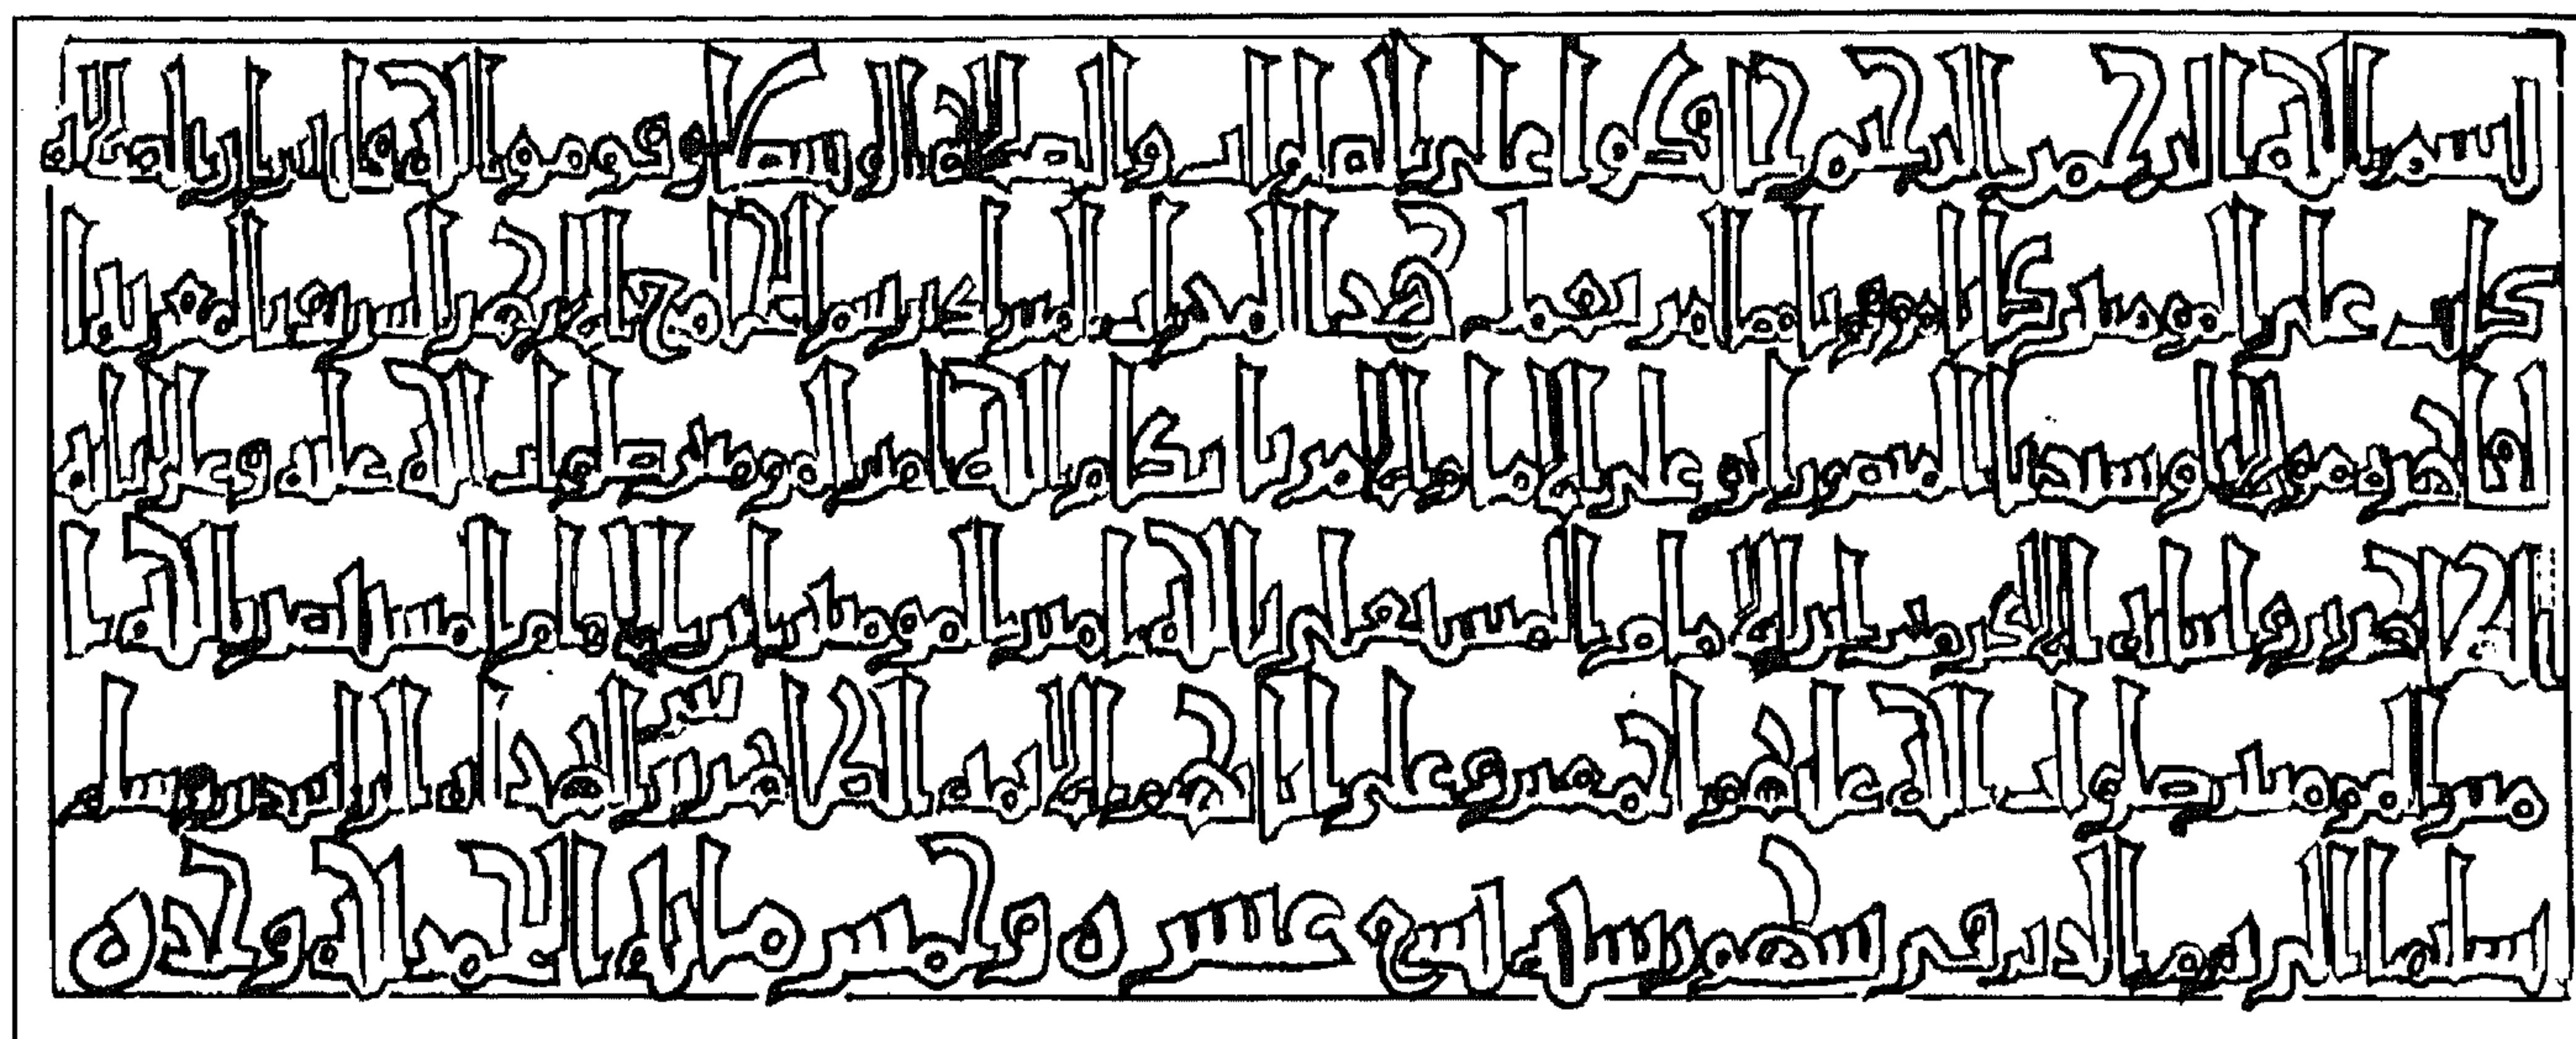 بسم الله الرحمن الرحيم حافظوا على الصلوات والصلوة الوسطى وقوموا لله قانتين ان الصلوة
كانت على المومنين كتابا موقوتا مما امر بعمل هذا المحراب المبارك برسم الجامع الازهر الشريف بالمعزية ا
لقاهرة مولانا وسيدنا المنصور ابو علي الامام الامر باحكام الله امير المومنين صلوات الله عليه وعلى ابائه
الطاهرين وابنائه الاكرمين ابن الامام المستعلي بالله امير المومنين ابن الامام المستنصر بالله ا
مير المومنين صلوات الله عليهم اجمعين وعلى ابائهم الائمة الطاهرين بني الهداة الراشدين وسلم
تسليما الى يوم الدين في شهور سنة تسع عشرة وخمس مائة الحمد لله وحده